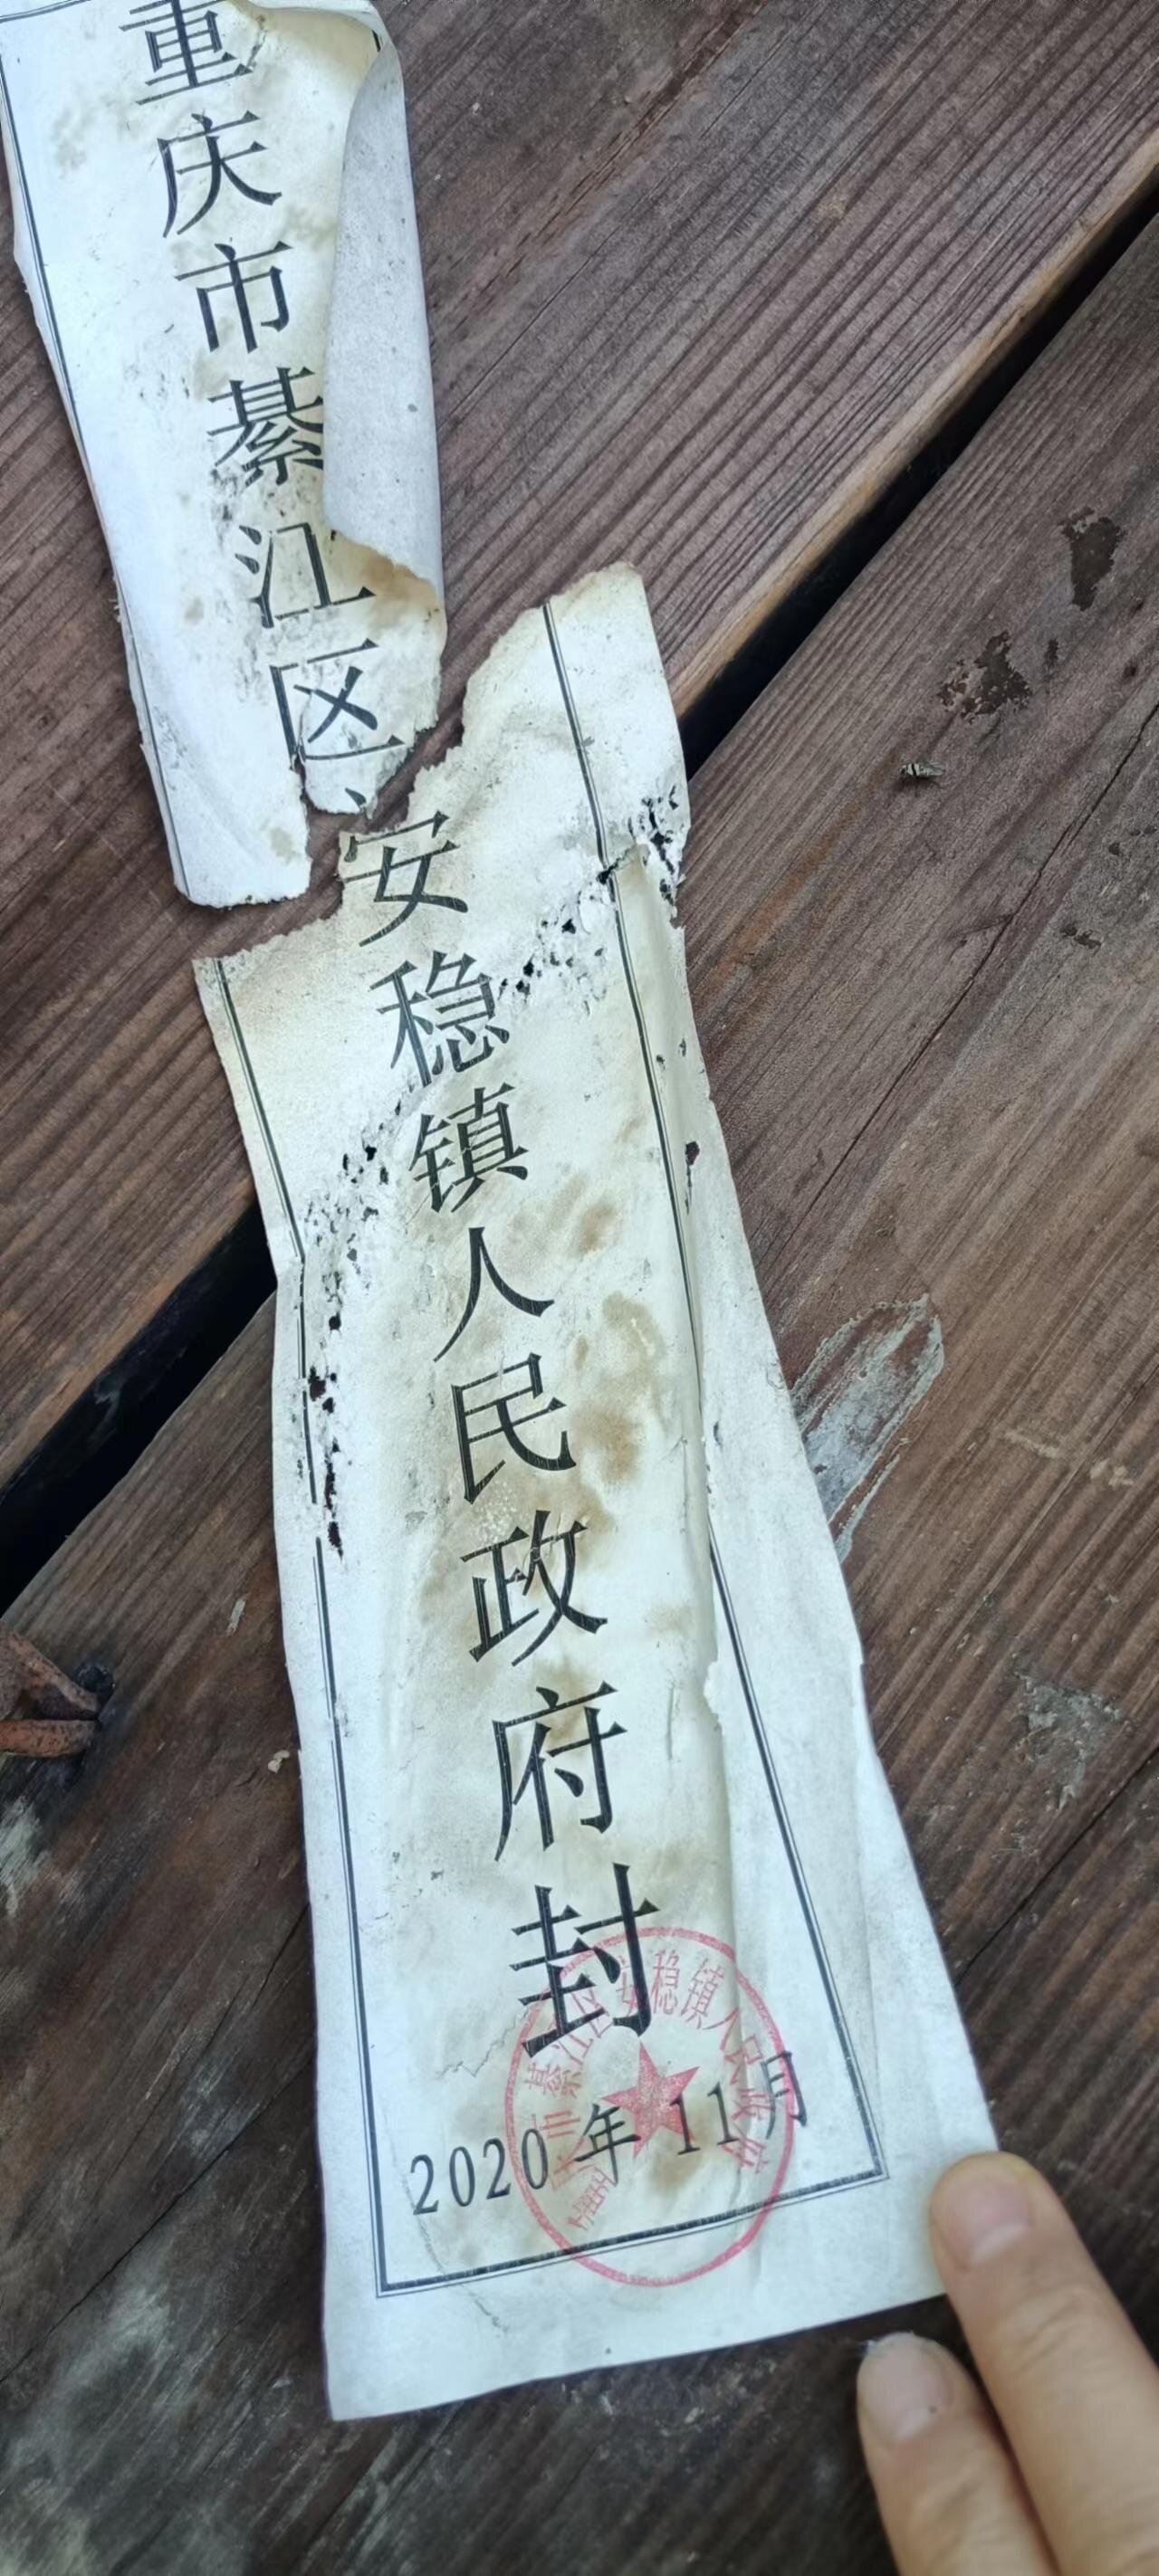 重庆市綦江区安稳镇人民政府封
2020年11月
重庆市綦江区安稳镇人民政府